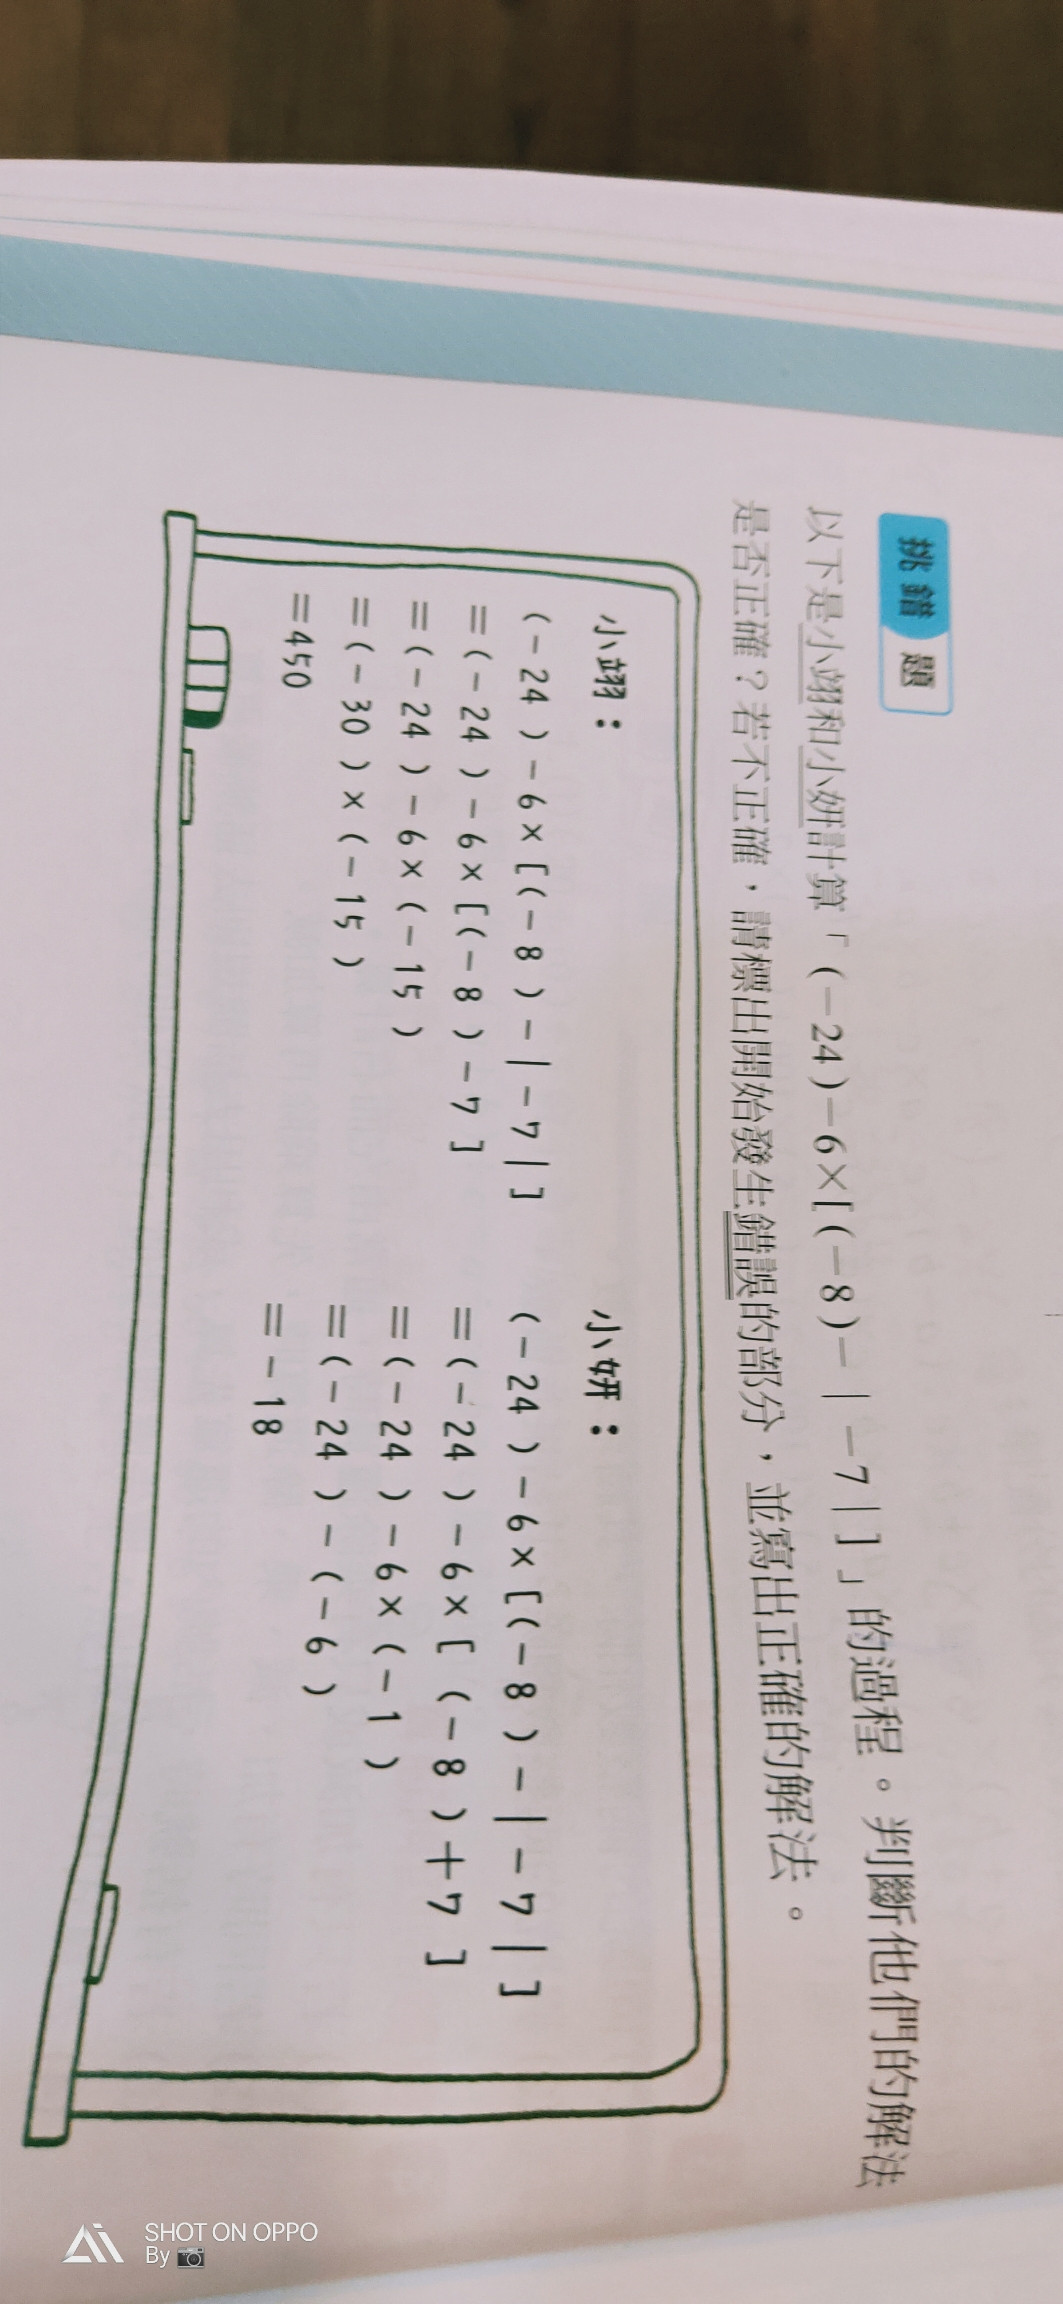 挑錯題
以下是小翊和小妍計算「(−24)−6×[(−8)−|−7|]」的過程。判斷他們的解法
是否正確？若不正確，請標出開始發生錯誤的部分，並寫出正確的解法。
小翊：
(−24)−6×[(−8)−|−7|]
=(−24)−6×[(−8)−7]
=(−24)−6×(−15)
=(−30)×(−15)
=450
小妍：
(−24)−6×[(−8)−|−7|]
=(−24)−6×[(−8)+7]
=(−24)−6×(−1)
=(−24)−(−6)
=−18
SHOT ON OPPO
By